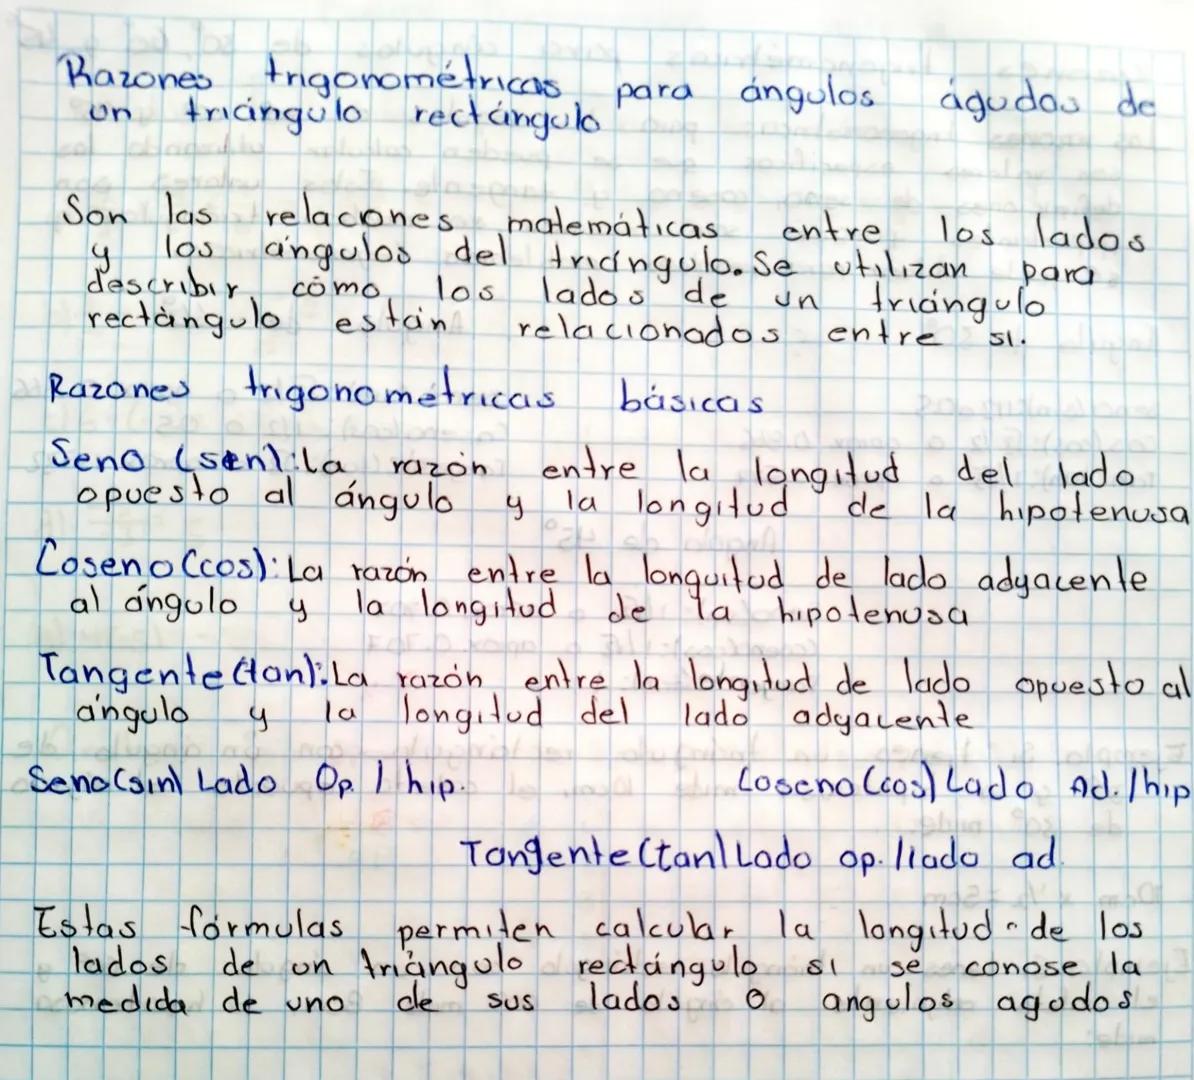 Razones trigonométricas para ángulos águdos de
un triángulo rectángulo
Son las relaciones matemáticas entre los lados
y los ángulos del triángulo. Se utilizan para
describir cómo los lados de un triángulo
rectángulo están relacionados entre si.
Razones trigonométricas básicas
Seno (sen): La razón entre la longitud del lado
opuesto al ángulo y la longitud de la hipotenusa
Coseno (cos): La razón entre la longuitud de lado adyacente
al ángulo y la longitud de la hipotenusa
Tangente (tan): La razón entre la longitud de lado opuesto al
ángulo y la longitud del lado adyacente
Seno (sin) Lado Op. / hip. Coseno (cos) Lado Ad. / hip
Tangente (tan) Lado op. / lado ad.
Estas fórmulas permiten calcular la longitud de los
lados de un triángulo rectángulo si se conose la
medida de uno de sus lados o angulos agudos